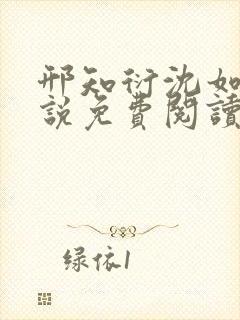 邢知衍沈如
説免費閱讀
绿依1